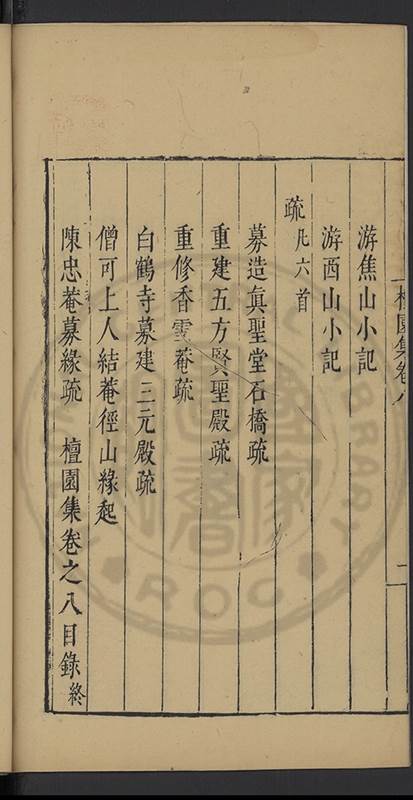 檀園集卷八
二
游焦山小記
游西山小記
疏 凡六首
募造眞聖堂石橋疏
重建五方賢聖殿疏
重修香雪菴疏
白鶴寺募建三元殿疏
僧可上人結菴徑山緣起
陳忠菴募緣疏 檀園集卷之八目錄 終